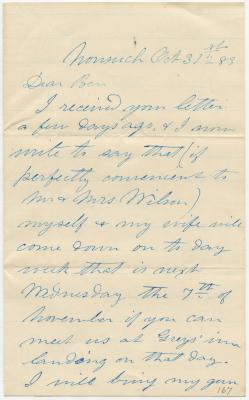 Nonsuch Oct 31st 83
Dear Ben
I received your letter
a few days ago, & I now
write to say that (if
perfectly convenient to
Mr & Mrs Wilson)
myself & my wife will
come down on to day
week that is next
Wednesday the 7th of
November if you can
meet us at Greys' inn
landing on that day.
I will bring my gun
167